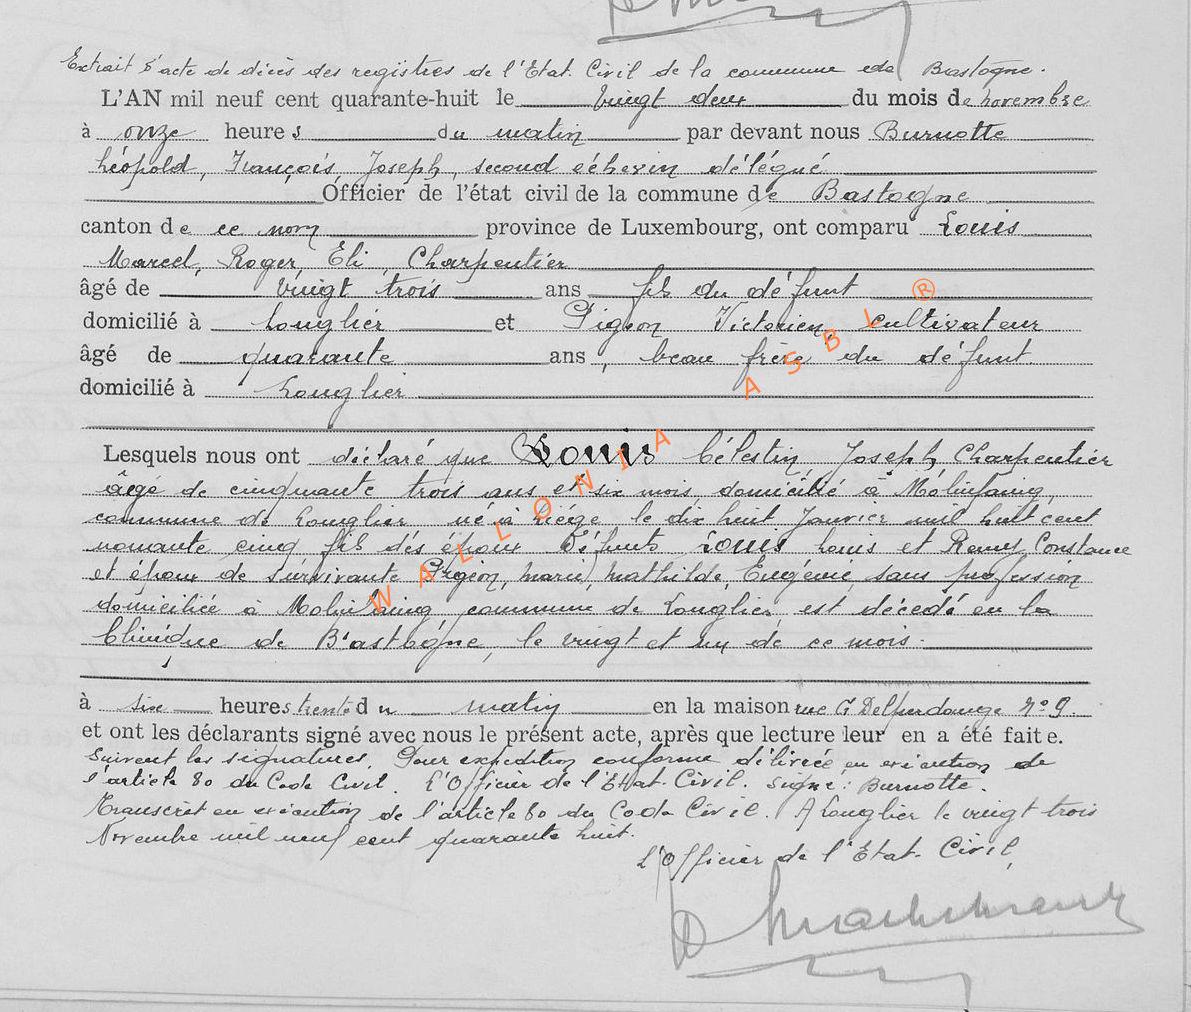 Extrait d'acte de décès des registres de l'Etat Civil de la commune de Bastogne.
L'AN mil neuf cent quarante-huit le vingt deux du mois de novembre
à onze heures du matin par devant nous Burnotte
Léopold, François, Joseph, second échevin délégué
Officier de l'état civil de la commune de Bastogne
canton de ce nom province de Luxembourg, ont comparu Louis
Marcel, Roger, Eli, Charpentier
âgé de vingt trois ans fils du défunt
domicilié à Longlier et Pigeon Victorien, cultivateur
âgé de quarante ans, beau frère du défunt
domicilié à Longlier
Lesquels nous ont déclaré que Louis Célestin, Joseph, Charpentier
âgé de cinquante trois ans et six mois, domicilié à Molinfaing,
commune de Longlier né à Liége le dix huit Janvier mil huit cent
nonante cinq fils des époux Défunts Louis Louis et Remy, Constance
et époux de survivante Pigeon, Marie, Mathilde, Eugénie sans profession
domiciliée à Molinfaing commune de Longlier est décedé en la
Clinique de Bastogne, le vingt et un de ce mois.
à six heures trente du matin en la maison rue G Delperdange n° 9.
et ont les déclarants signé avec nous le présent acte, après que lecture leur en a été faite.
Suivent les signatures. Pour expédition conforme délivrée en exécution de
l'article 80 du Code Civil. L'Officier de l'Etat-Civil. Signé: Burnotte.
Transcrit en exécution de l'article 80 du Code Civil. A Longlier le vingt trois
Novembre mil neuf cent quarante huit.
L'Officier de l'Etat-Civil,
WALLONIA ASBL ®